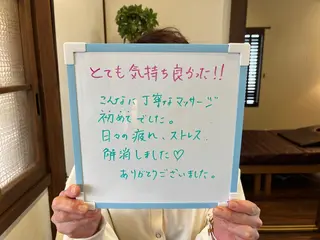 とても気持ち良かった!!
こんなに丁寧なマッサージ
初めてでした。
日々の疲れ、ストレス
解消しました♡
ありがとうございました。